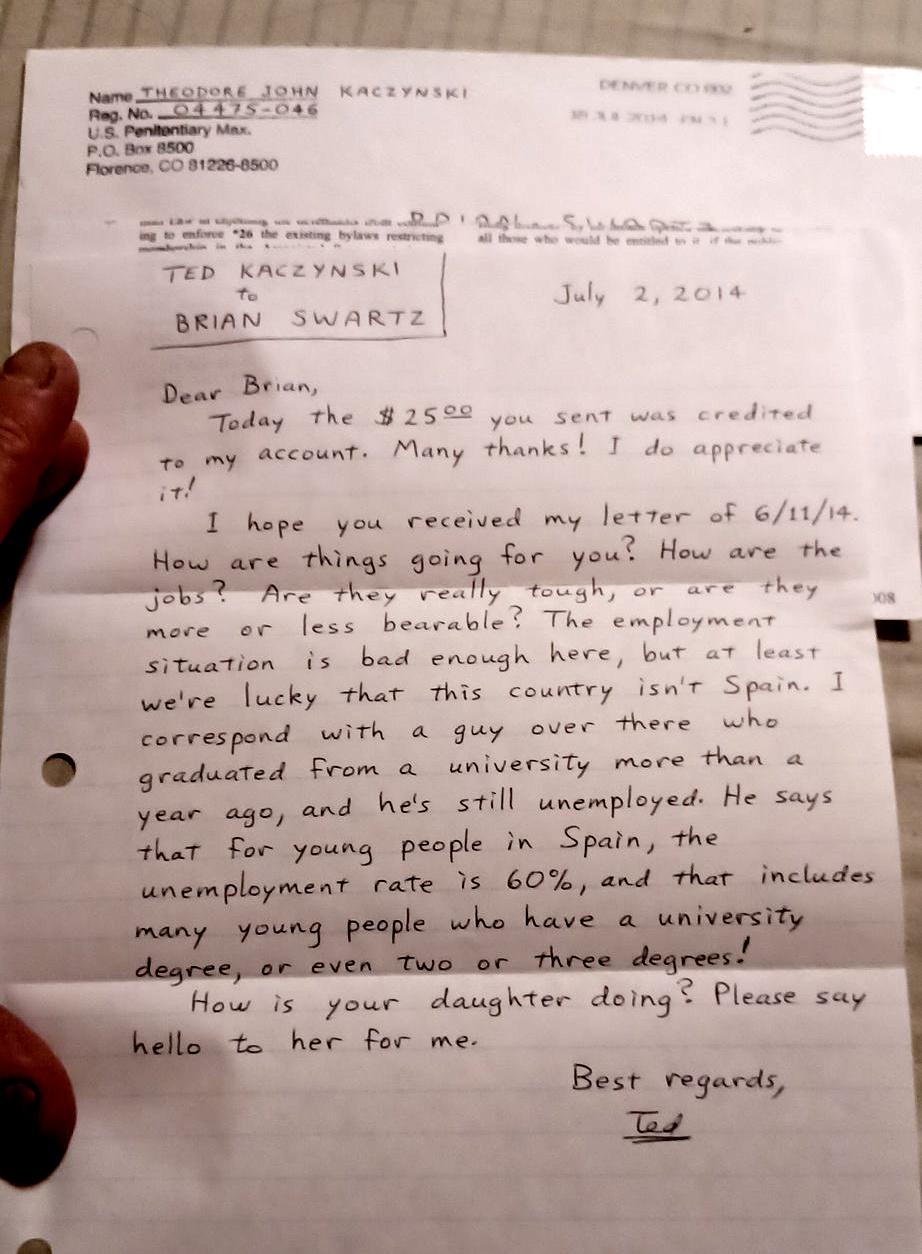 Name THEODORE JOHN KACZYNSKI
Reg. No. 04475-046
U.S. Penitentiary Max.
P.O. Box 8500
Florence, CO 81226-8500
DENVER CO 802
ing to enforce "26 the existing bylaws restricting
all those who would be entitled to it if the
TED KACZYNSKI
to
BRIAN SWARTZ
July 2, 2014
Dear Brian,
Today the $2500 you sent was credited
to my account. Many thanks! I do appreciate
it!
I hope you received my letter of 6/11/14.
How are things going for you? How are the
jobs? Are they really tough, or are they
more or less bearable? The employment
situation is bad enough here, but at least
we're lucky that this country isn't Spain. I
correspond with a guy over there who
graduated from a university more than a
year ago, and he's still unemployed. He says
that for young people in Spain, the
unemployment rate is 60%, and that includes
many young people who have a university
degree, or even two or three degrees!
How is your daughter doing? Please say
hello to her for me.
Best regards,
Ted